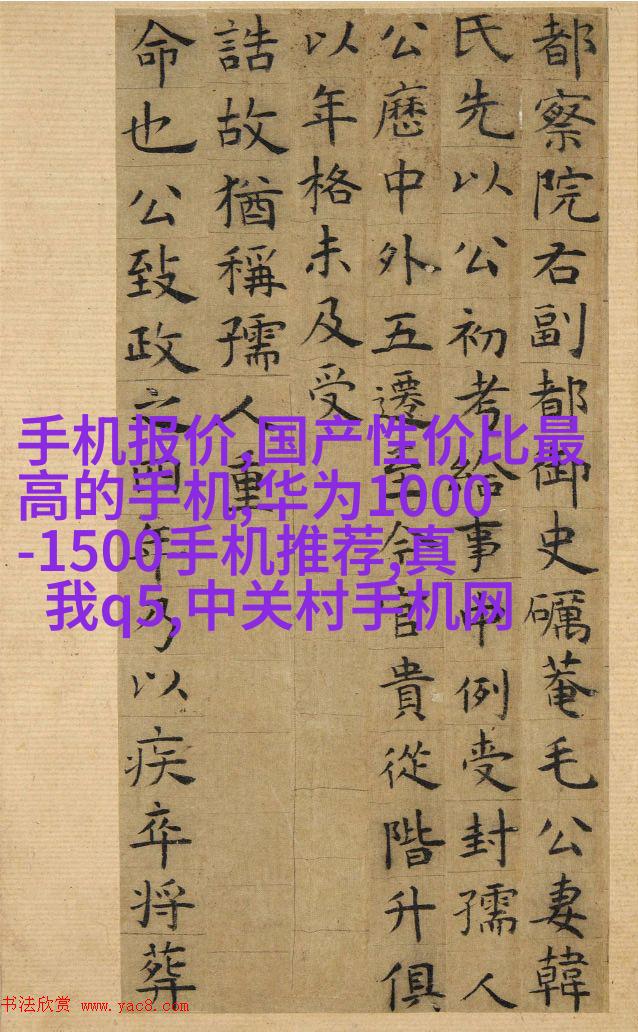 都察院右副都御史礪菴毛公妻韓
氏先以公初考給事中例受封孺人
公歷中外五遷至今官貴從階升俱
以年格未及受
誥故猶稱孺人重
命也公致政之四年乃以疾卒將葬
手机报价,国产性价比最
高的手机,华为1000
-1500手机推荐,真
我q5,中关村手机网
书法欣赏 www.yac8.com